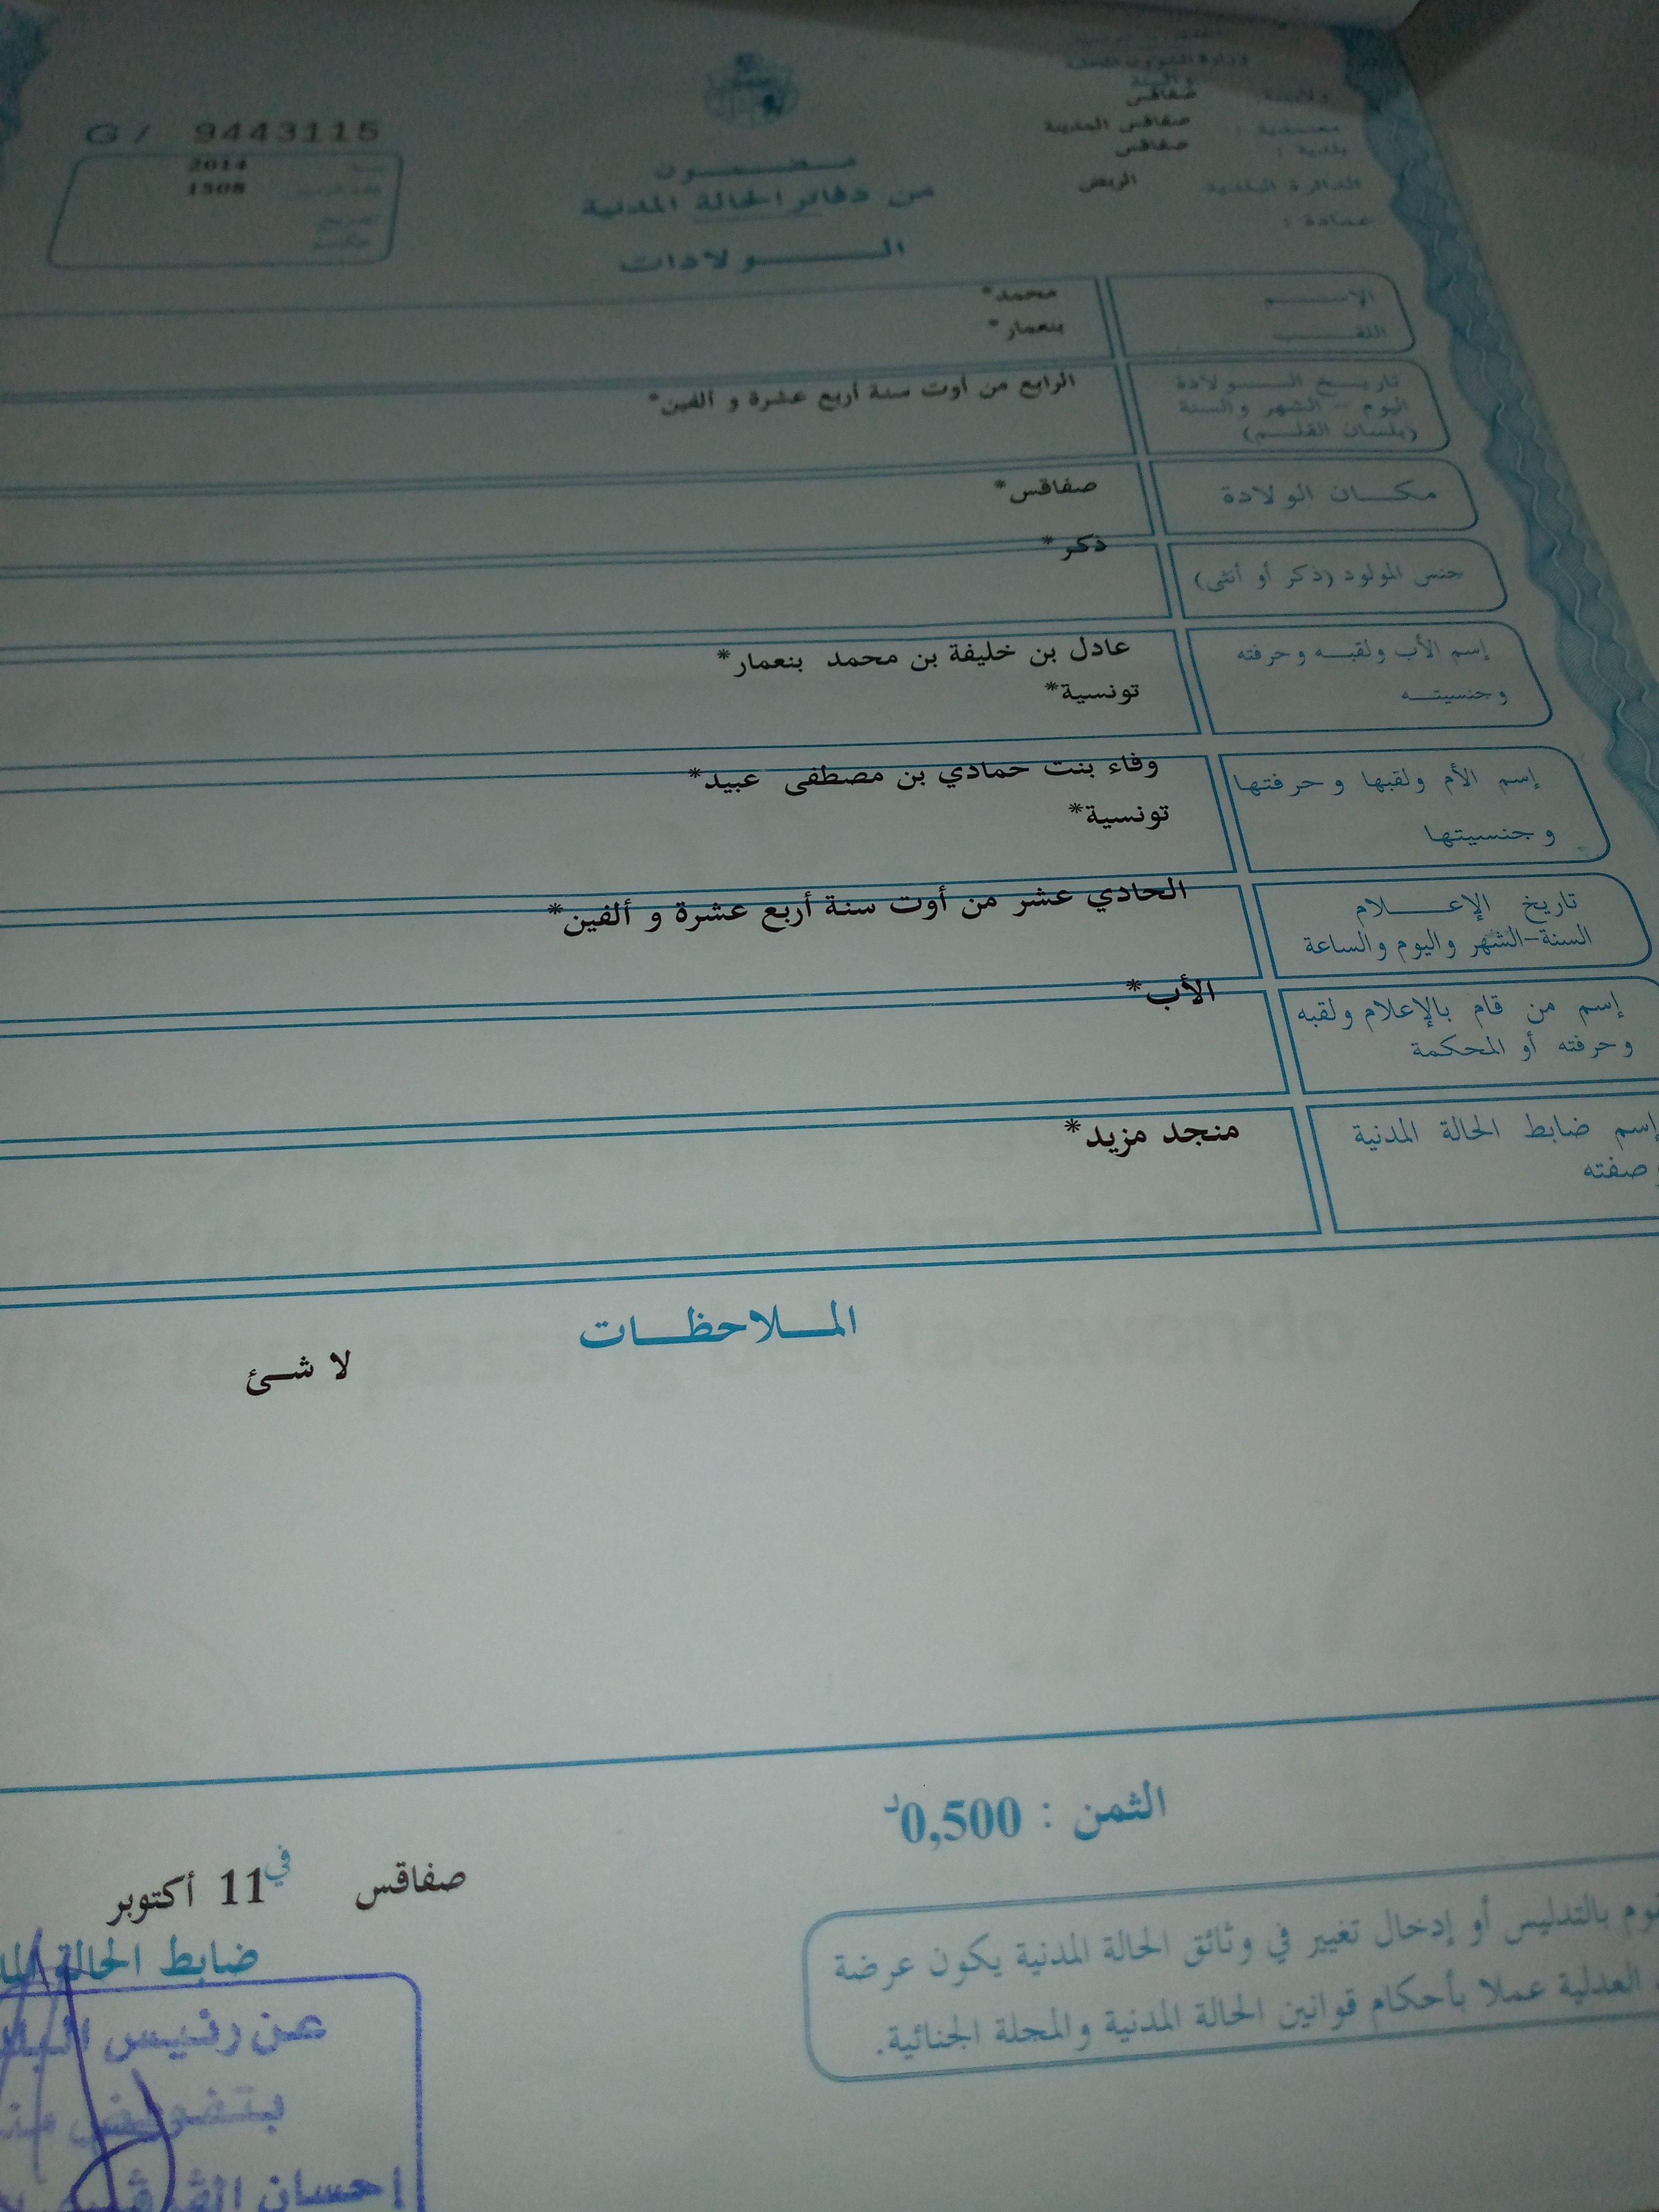 وزارة الشؤون المحلية
والبيئة
ولاية : صفاقس
معتمدية : صفاقس المدينة
بلدية : صفاقس
الدائرة البلدية الربض
عمادة :
G / 9443115
سنة 2014
عدد الرسم 1508
مضمون
من دفاتر الحالة المدنية
الولادات
الإسم محمد*
اللقب بنعمار*
تاريخ الولادة
اليوم - الشهر والسنة
(بلسان القلم)
الرابع من أوت سنة أربع عشرة و ألفين*
مكان الولادة صفاقس*
جنس المولود (ذكر أو أنثى) ذكر*
إسم الأب ولقبه وحرفته
وجنسيته
عادل بن خليفة بن محمد بنعمار*
تونسية*
إسم الأم ولقبها وحرفتها
وجنسيتها
وفاء بنت حمادي بن مصطفى عبيد*
تونسية*
تاريخ الإعلام
السنة-الشهر واليوم والساعة
الحادي عشر من أوت سنة أربع عشرة و ألفين*
إسم من قام بالإعلام ولقبه
وحرفته أو المحكمة
الأب*
إسم ضابط الحالة المدنية
وصفته
منجد مزيد*
الملاحظات
لا شئ
الثمن : 0,500د
صفاقس في 11 أكتوبر
ضابط الحالة
عن رئيس
بتفويض
إحسان
بالتدليس أو إدخال تغيير في وثائق الحالة المدنية يكون عرضة
العدلية عملا بأحكام قوانين الحالة المدنية والمجلة الجنائية.